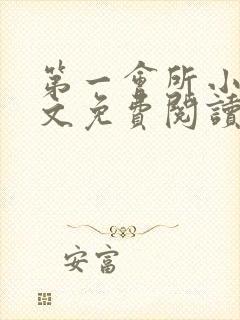 第一會所小
文免費閱讀
安富